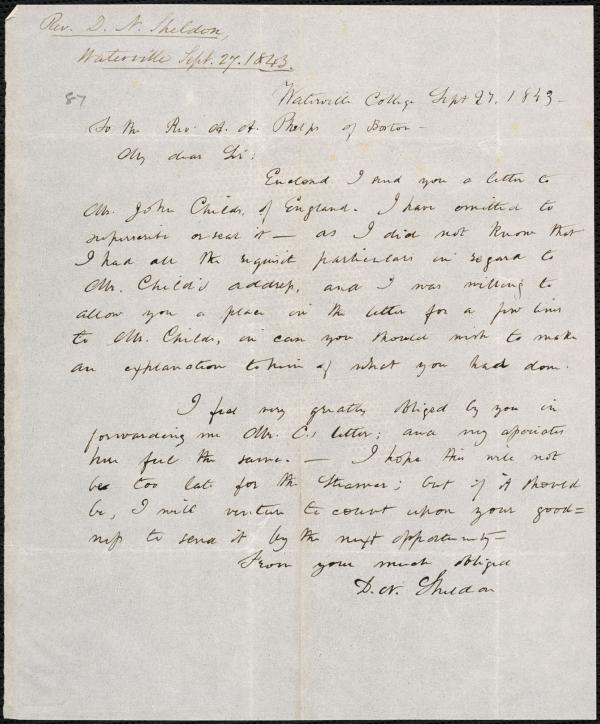 Rev. D. N. Sheldon,
Waterville Sept. 27. 1843.
87
Waterville College Sept 27. 1843-
To the Rev. A. A. Phelps of Boston-
My dear Sir:
Enclosed I send you a letter to
Mr. John Childs, of England. I have omitted to
superscribe or seal it — as I did not know that
I had all the requisit particulars in regard to
Mr. Child's address, and I was willing to
allow you a place in the letter for a few lines
to Mr. Childs, in case you should wish to make
an explanation to him of what you had done.
I feel very greatly obliged by you in
forwarding me Mr. C.s letter; and my associates
here feel the same. — I hope this will not
be too late for the Steamer; but if it should
be, I will venture to count upon your good=
ness to send it by the next opportunity-
From your much obliged
D. N. Sheldon